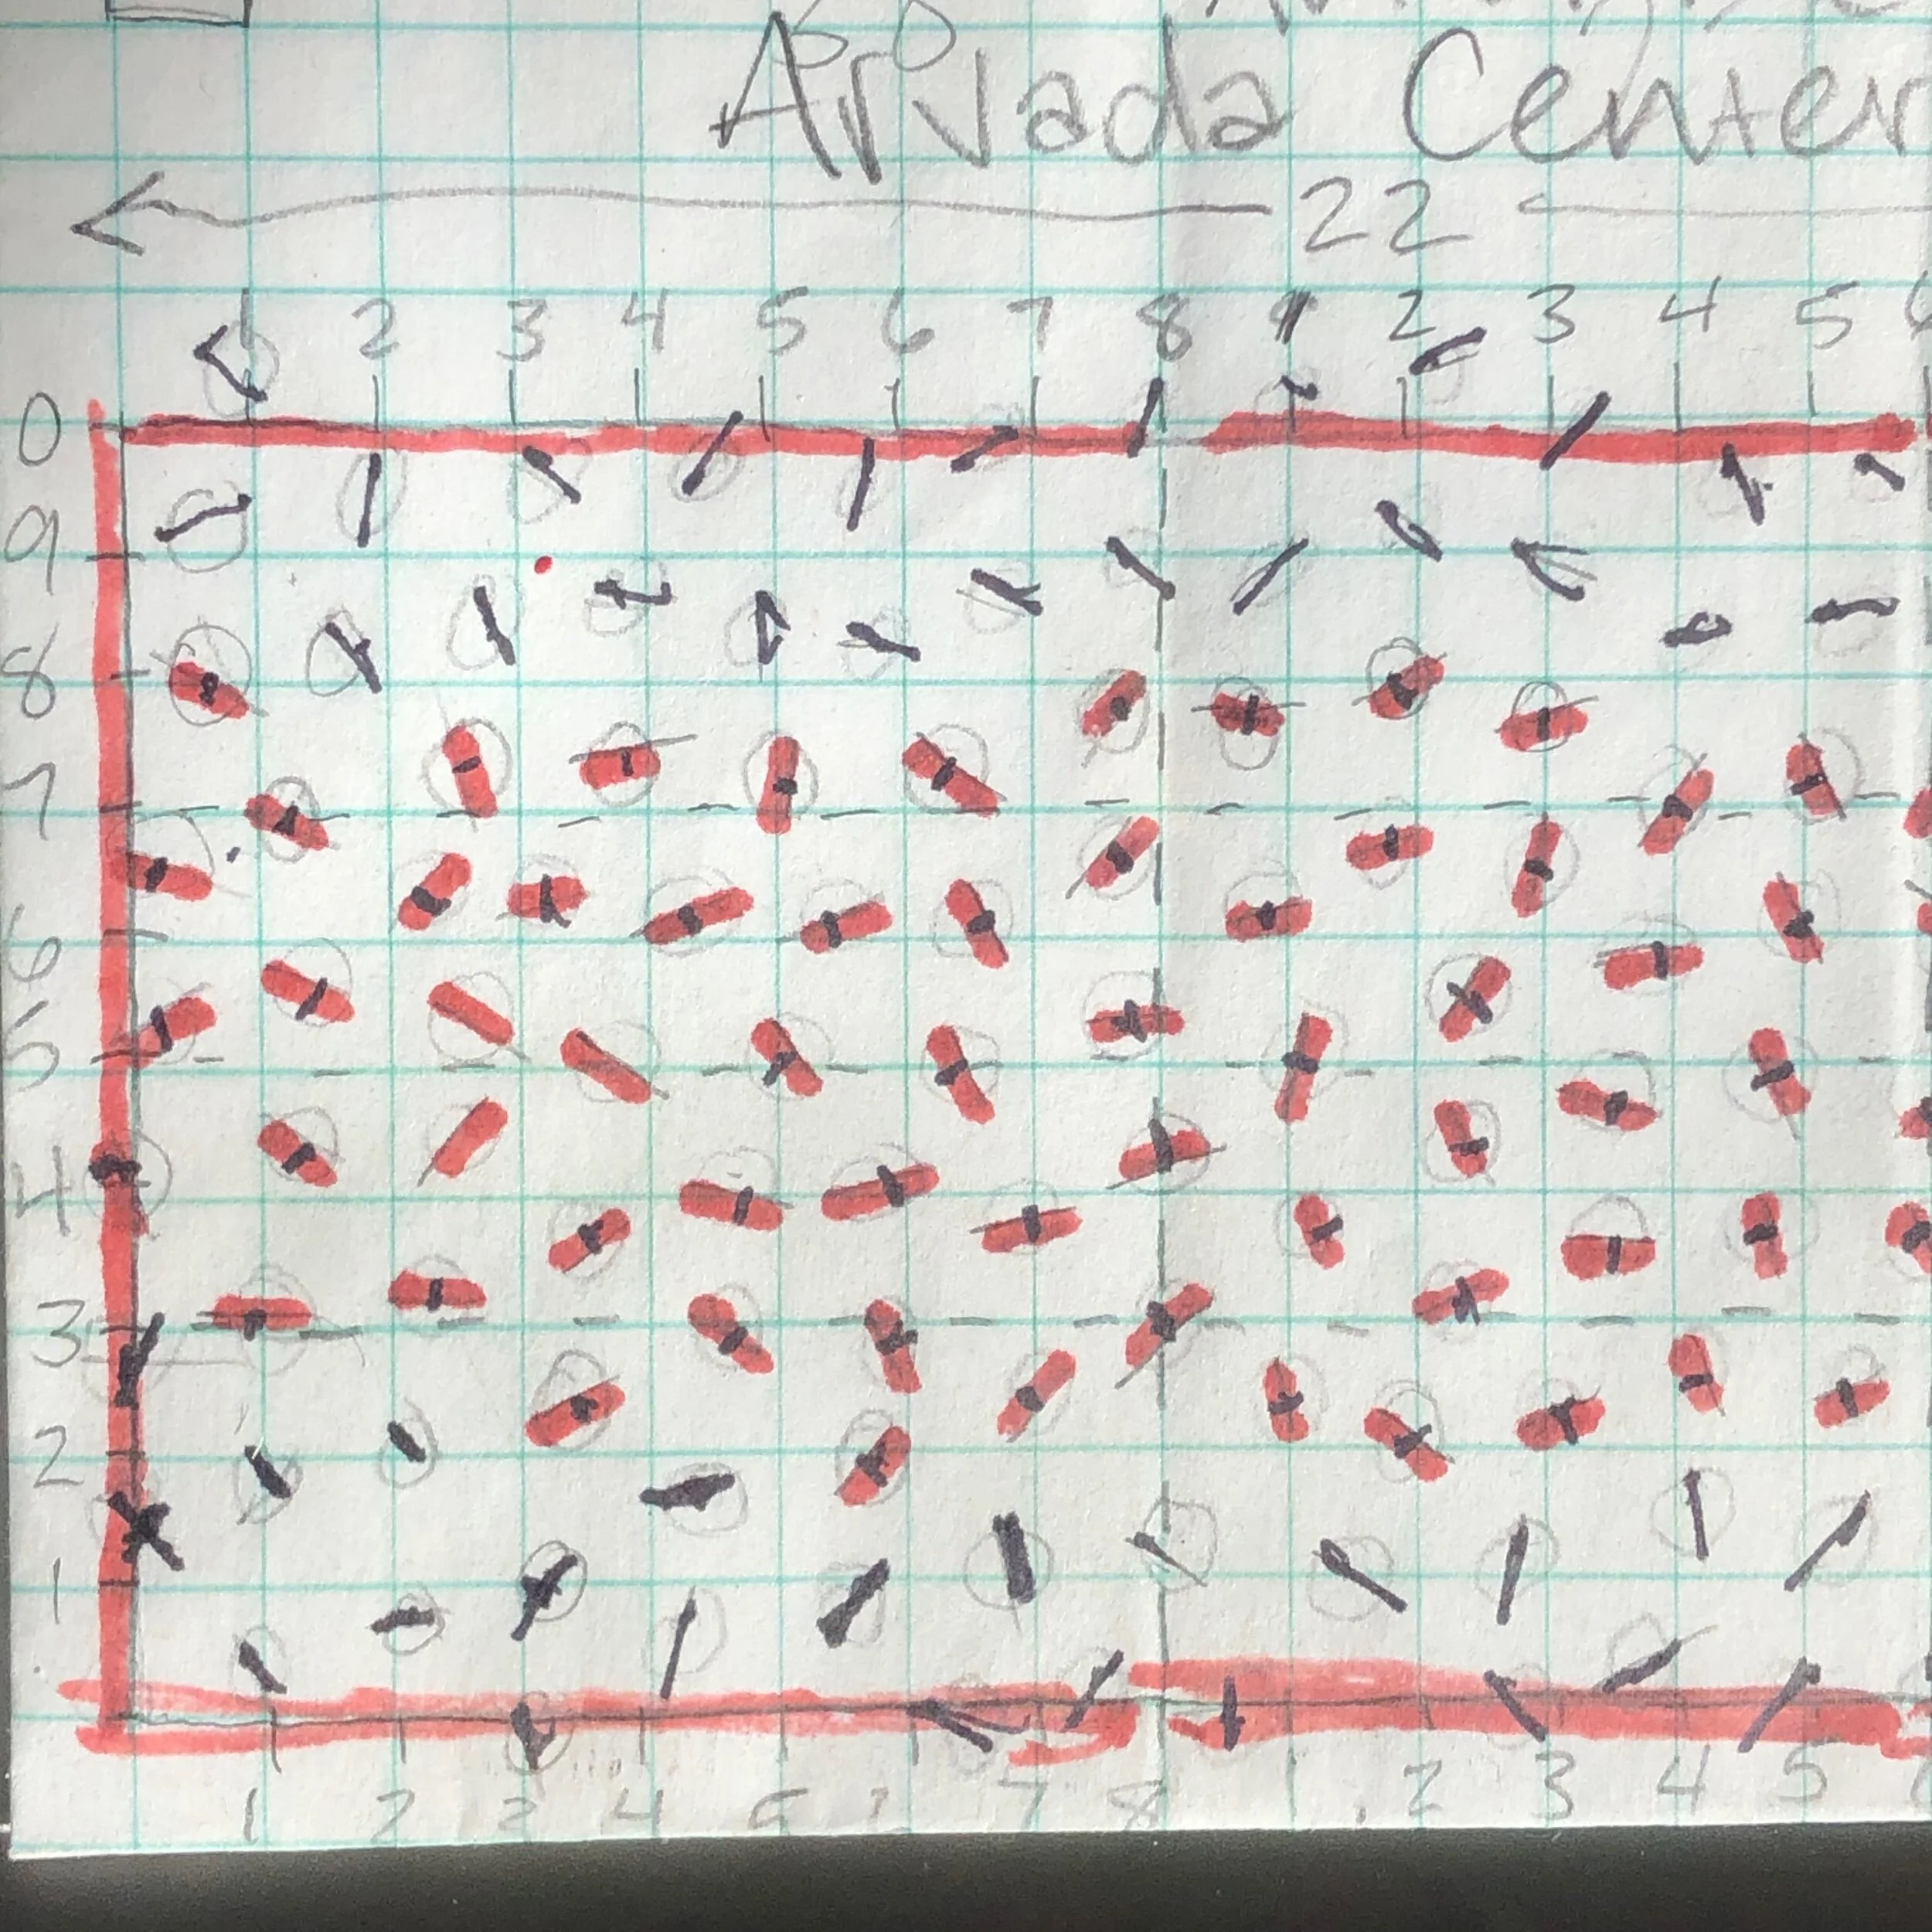 Arvada Center
22
1 2 3 4 5 6 7 8 1 2 3 4 5
0
9
8
7
6
5
4
3
2
1
1 2 3 4 5 7 8 1 2 3 4 5